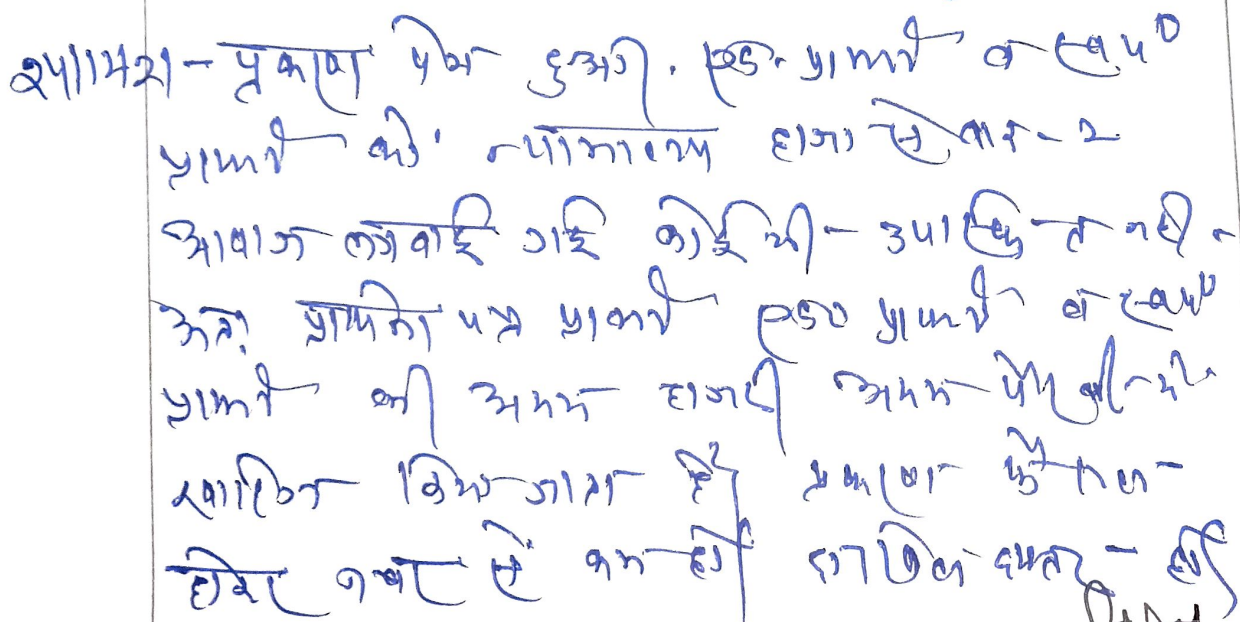 प्रकरण पेश हुआ। एड. प्रार्थी व स्वयं
प्रार्थी को न्यायालय हाजा से बार-2
आवाज लगवाई गई कोई भी उपस्थित नहीं
अतः प्रार्थना पत्र प्रार्थी एड० प्रार्थी व स्वयं
प्रार्थी की अदम हाजरी अदम पैरवी में
खारिज किया जाता है। प्रकरण फैसल
होकर नम्बर से कम हो दाखिल दफ्तर हो।